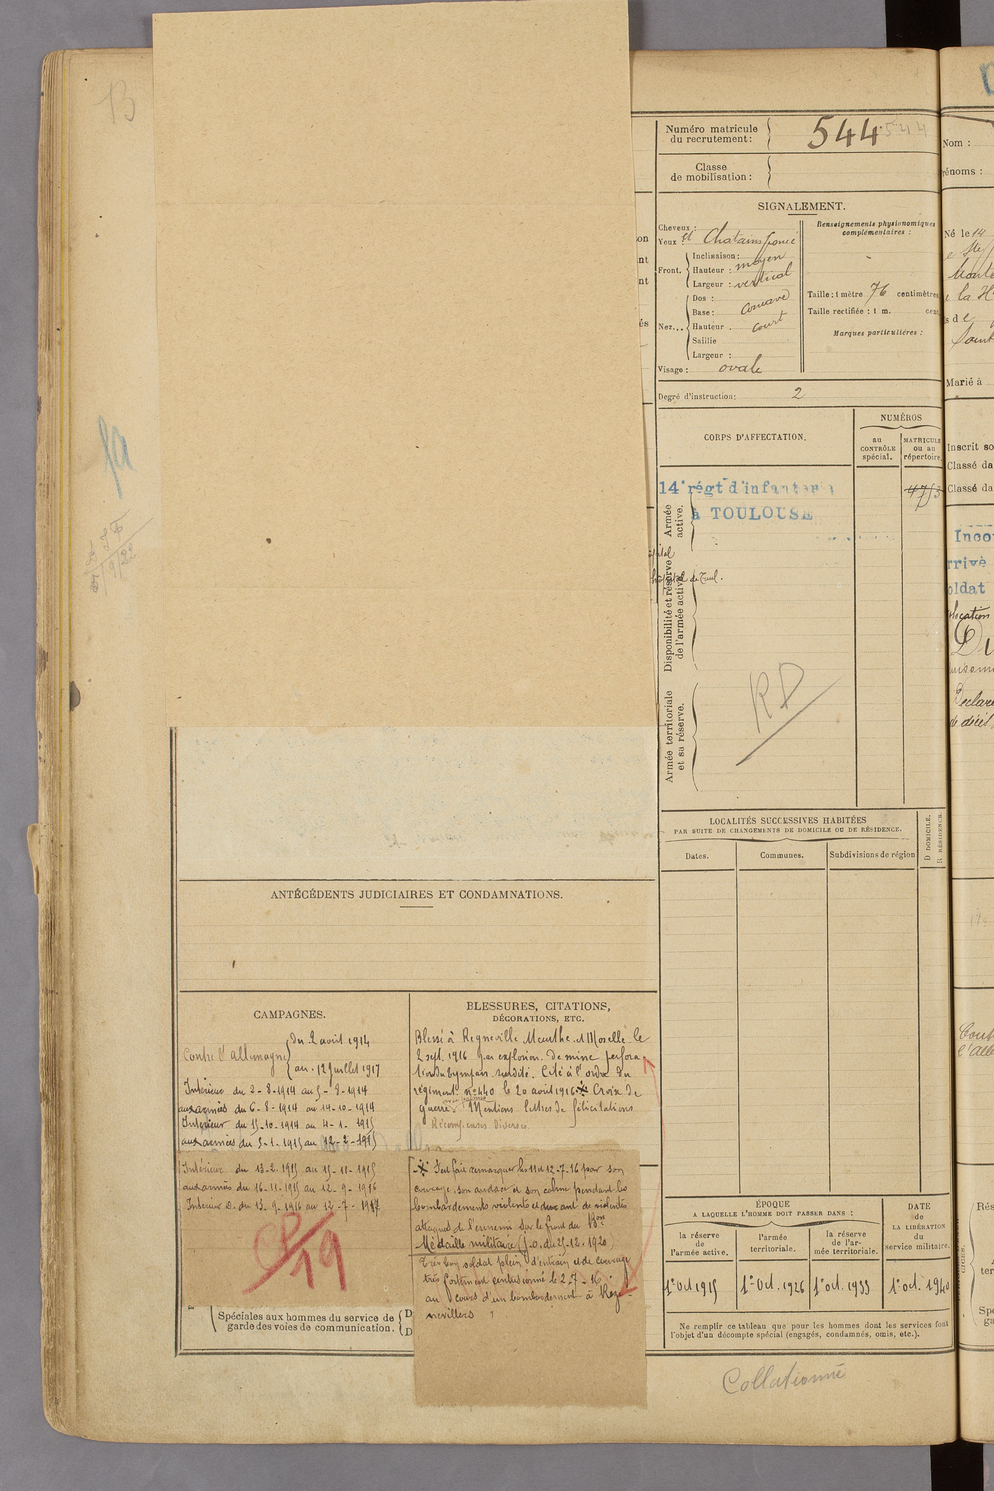 13
Numéro matricule du recrutement : 544
544
Classe de mobilisation :
SIGNALEMENT.
Cheveux :
Yeux et Chatains foncé
Front. Inclinaison :
Hauteur : moyen
Largeur : vertical
Nez... Dos :
Base : concave
Hauteur . court
Saillie
Largeur :
Visage : ovale
Renseignements physionomiques complémentaires :
Taille : 1 mètre 76 centimètres
Taille rectifiée : 1 m. cent
Marques particulières :
Degré d'instruction : 2
CORPS D'AFFECTATION.
NUMÉROS
au CONTRÔLE spécial.
MATRICULE ou au répertoire.
14e régt d'infanterie
à TOULOUSE
Armée active.
Disponibilité et réserve de l'armée active.
Armée territoriale et sa réserve.
RD
LOCALITÉS SUCCESSIVES HABITÉES
PAR SUITE DE CHANGEMENTS DE DOMICILE OU DE RÉSIDENCE.
Dates.
Communes.
Subdivisions de région
D DOMICILE.
R RÉSIDENCE.
ANTÉCÉDENTS JUDICIAIRES ET CONDAMNATIONS.
CAMPAGNES.
Contre l'allemagne du 2 avril 1914
au 12 juillet 1917
Intérieur du 2-8-1914 au 5-8-1914
aux armées du 6-8-1914 au 14-10-1914
Intérieur du 15-10-1914 au 4-1-1915
aux armées du 5-1-1915 au 12-2-1915
Intérieur du 13-2-1915 au 15-11-1915
aux armées du 16-11-1915 au 12-9-1916
Intérieur C. du 13-9-1916 au 12-7-1917
CP/19
Spéciales aux hommes du service de
garde des voies de communication.
D
D
BLESSURES, CITATIONS,
DÉCORATIONS, ETC.
Blessé à Regneville Meurthe et Moselle le
2 sept. 1916 par explosion de mine perfora
tion du tympan surdité. Cité à l'ordre du
régiment n° 440 le 20 août 1916 Croix de
guerre. Mentions lettres de félicitations
Récompenses diverses.
S'est fait remarquer les 11 et 12-7-16 par son
courage son audace et son calme pendant les
bombardements violents et durant de violentes
attaques de l'ennemi sur le front du Bon
Médaille militaire (J.o. du 25-12-1920)
Très bon soldat plein d'entrain et de courage
très fortement contusionné le 2-7-16
au cours d'un bombardement à
nevillers
ÉPOQUE
A LAQUELLE L'HOMME DOIT PASSER DANS :
la réserve de l'armée active.
l'armée territoriale.
la réserve de l'armée territoriale.
DATE de LA LIBÉRATION du service militaire.
1er Oct 1915
1er Oct. 1926
1er oct. 1933
1er oct. 1940
Ne remplir ce tableau que pour les hommes dont les services font
l'objet d'un décompte spécial (engagés, condamnés, omis, etc.).
Collationné
Nom :
Né le 14
Marié à
Inscrit so
Classé da
Classé da
Inco